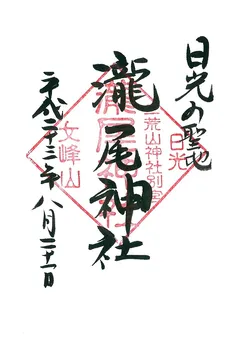 日光の聖地
瀧尾神社
平成二十三年八月二十一日
二荒山神社別宮
日光
瀧尾神社
女峰山